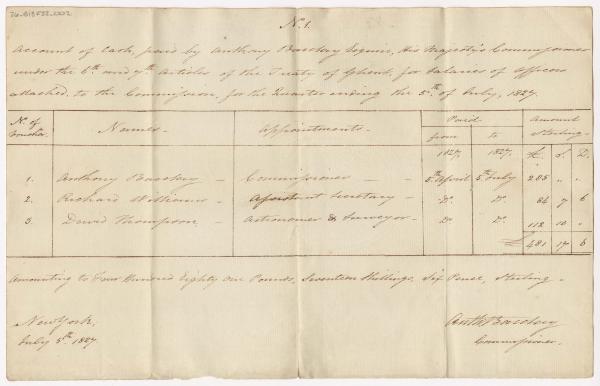 76-B1F22.I2C2
No. 1.
Account of Cash, paid by Anthony Barclay Esquire, His Majesty's Commissioner
under the 6th and 7th Articles of the Treaty of Ghent, for Salaries of Officers
attached to the Commission, for the Quarter ending the 5th of July, 1827.
No. of Voucher Names Appointments Period Amount Sterling
from to
1827. 1827. £ S. D.
1. Anthony Barclay Commissioner 5th April 5th July 285 " "
2. Richard Williams Assistant Secretary Do. Do. 84 7 6
3. David Thompson Astronomer & Surveyor Do. Do. 112 10 "
£ 481 17 6
Amounting to Four Hundred Eighty One Pounds, Seventeen Shillings, Six Pence, Sterling.
New York,
July 5th 1827
Anth Barclay
Commissioner.